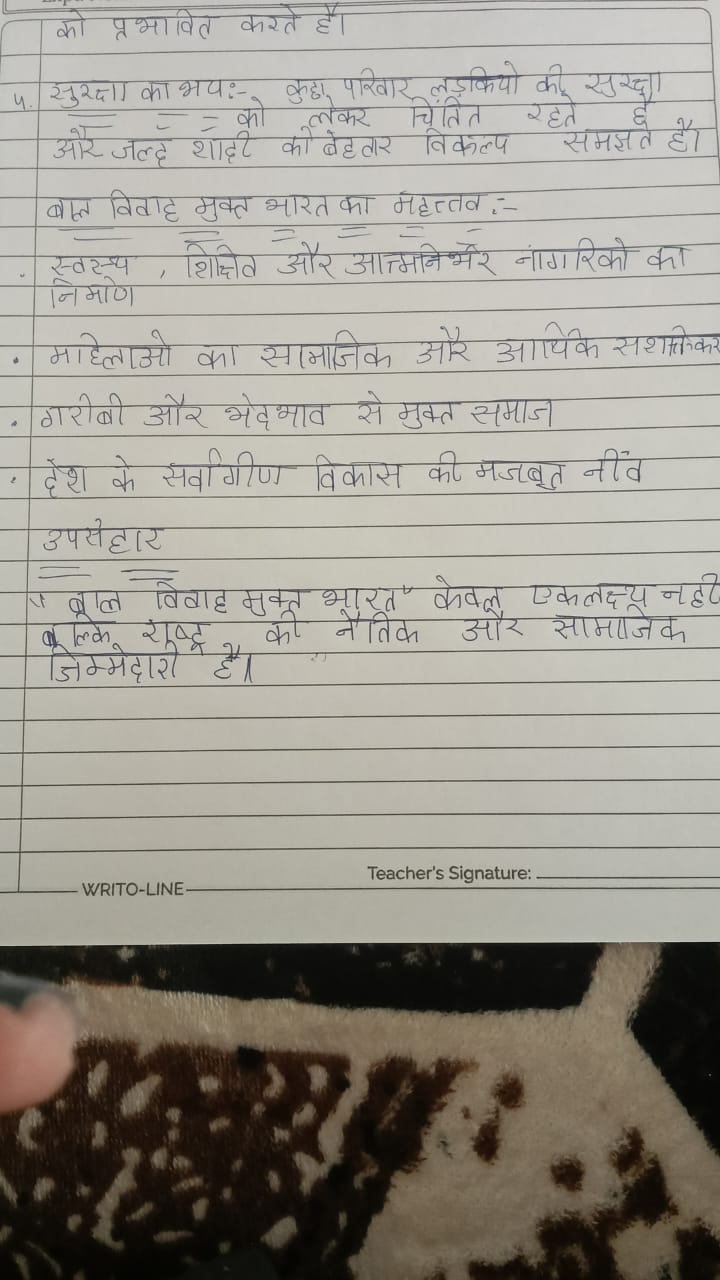 को प्रभावित करते है।
५. सुरक्षा का भय:- कुछ परिवार लड़कियो की सुरक्षा
को लेकर चिंतित रहते है
और जल्द शादी को बेहतार विकल्प समझते है।
बाल विवाह मुक्त भारत का महत्तव :-
. स्वस्थ , शिक्षित और आत्मनिर्भर नागरिको का
निर्माण
• महिलाओ का सामाजिक और आर्थिक
. गरीबी और भेदभाव से मुक्त समाज
. देश के सर्वांगीण विकास की मजबूत नींव
उपसंहार
" बाल विवाह मुक्त भारत" केवल एक लक्ष्य नही
बल्कि राष्ट्र की नैतिक और सामाजिक
जिम्मेदारी है।
Teacher's Signature:
WRITO-LINE